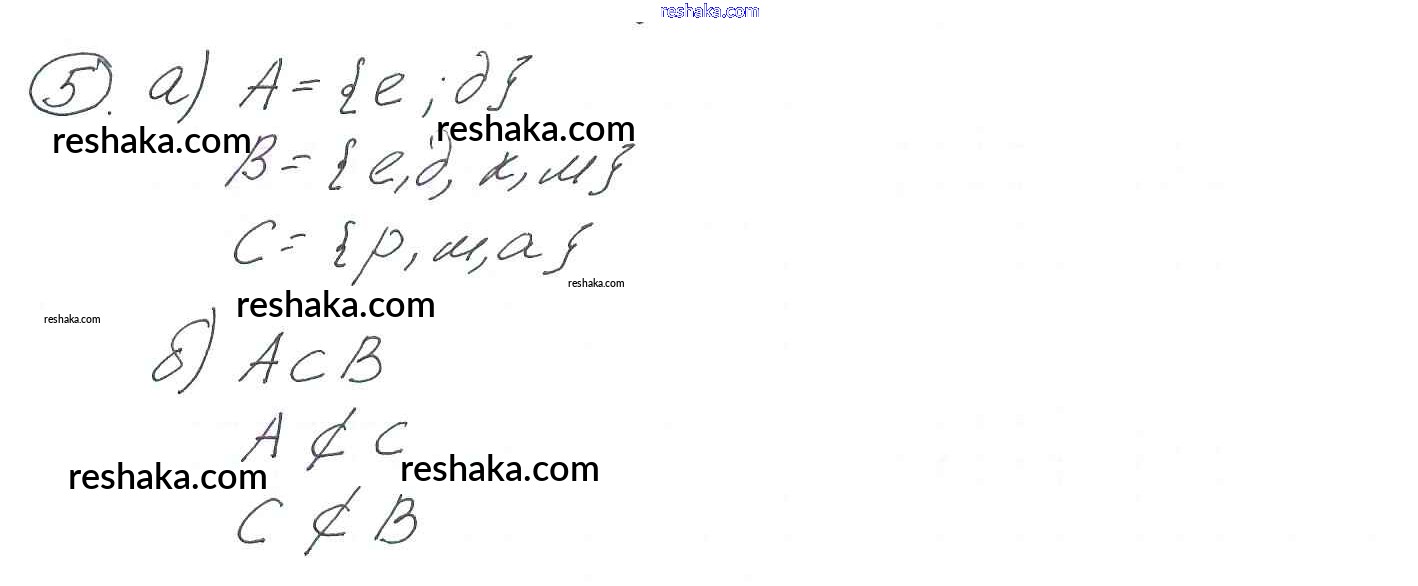 reshaka.com
5. а) A = {е ; д}
reshaka.com reshaka.com
B = {е, д, к, м}
C = {р, м, а}
reshaka.com
reshaka.com
reshaka.com
б) A ⊂ B
A ⊄ C
reshaka.com reshaka.com
C ⊄ B